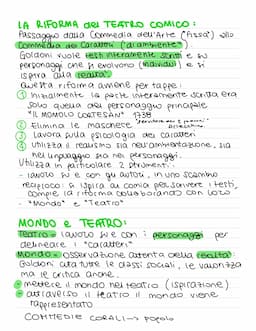 LA RIFORMA del TEATRO COMICO:
Passaggio dalla Commedia dell'Arte ("fissa") alla
Commedia dei Caratteri ("d'ambiente")
Goldoni vuole testi interamente scritti e su
personaggi che si evolvono (mondo) e si
ispira alla realtà.
Questa riforma avviene per tappe:
① Inizialmente la parte interamente scritta era
solo quella del personaggio principale
"IL MOMOLO CORTESAN" 1738
② Elimina le maschere
③ lavora sulla psicologia dei caratteri
④ Utilizza il realismo sia nell'ambientazione, sia
nel linguaggio sia nei personaggi.
Utilizza in particolare 2 strumenti:
- lavoro sui e con gli autori, in uno scambio
reciproco: si ispira da come per scrivere i testi,
compie la riforma collaborando con loro
- "Mondo" e "Teatro"
MONDO e TEATRO:
Teatro = lavoro sui e con i personaggi per
delineare i "caratteri"
Mondo = osservazione attenta della realtà:
Goldoni dà tutte le classi sociali, le valorizza
ma le critica anche.
mettere il mondo nel teatro (ispirazione)
attraverso il teatro il mondo viene
rappresentato
COMMEDIE CORALI → popolo